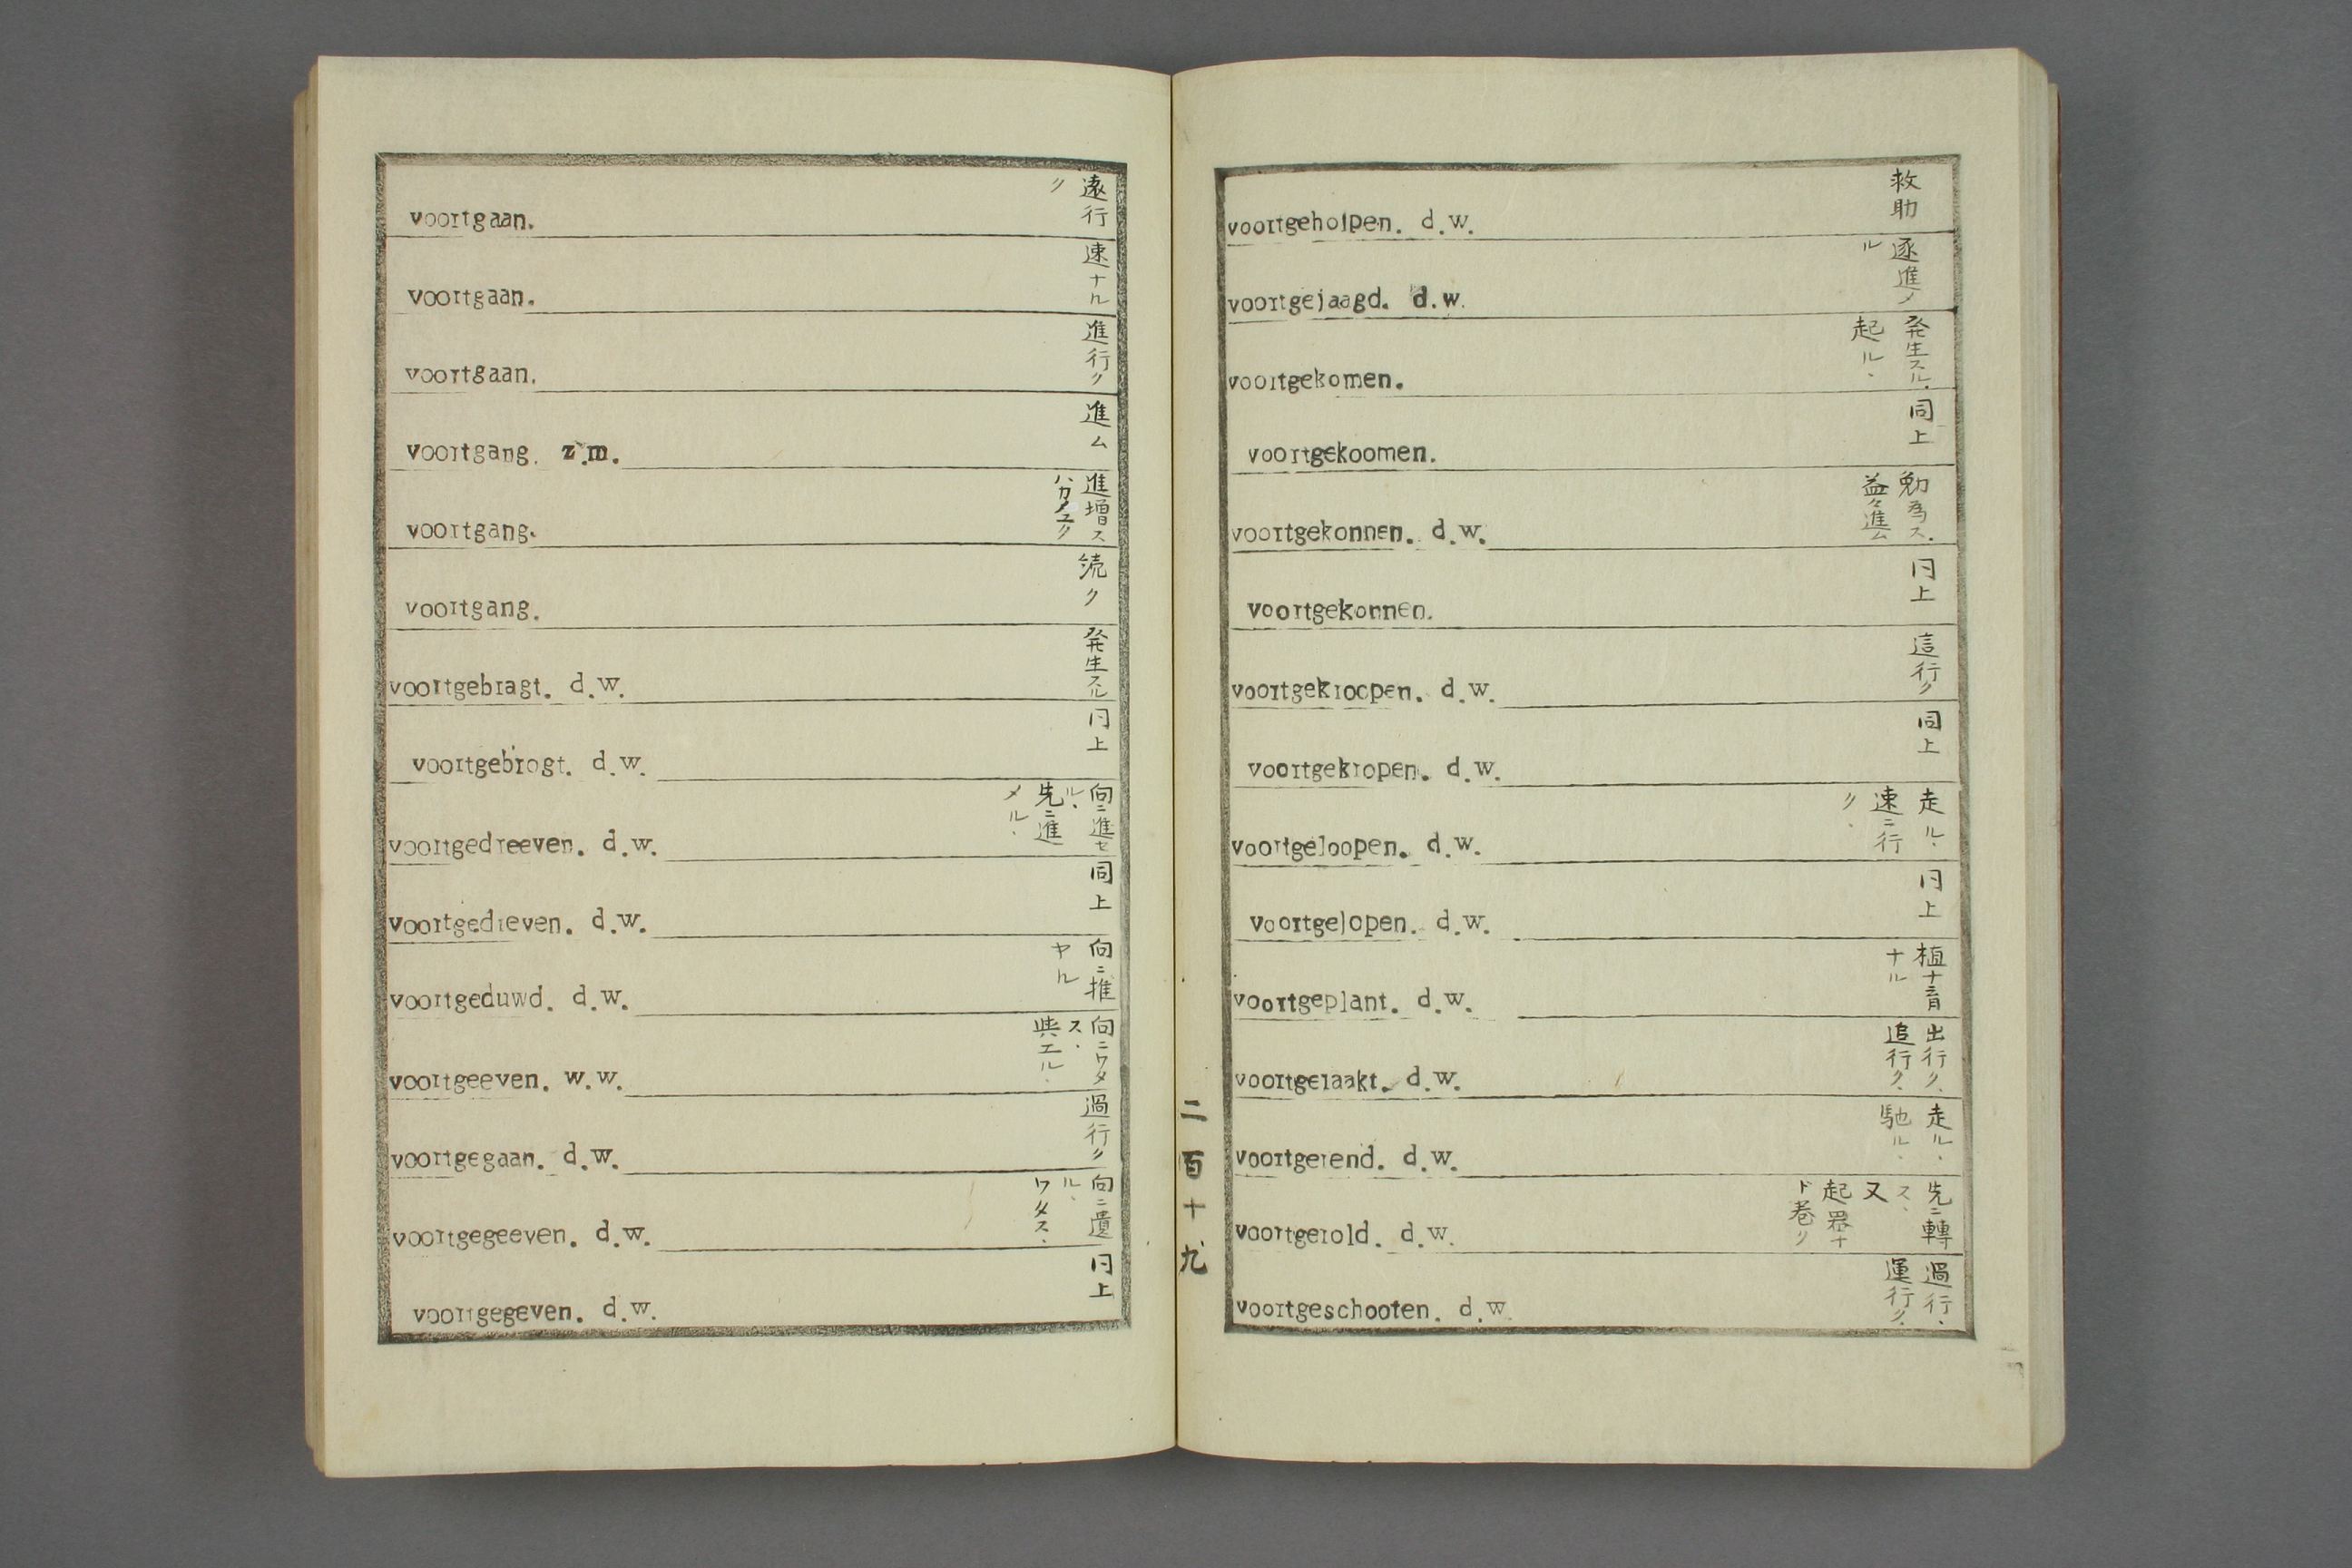 voortgaan. 遠行ク
voortgaan. 速ナル
voortgaan. 進行ク
voortgang. z.m. 進ム
voortgang. 進増ス ハカノユク
voortgang. 続ク
voortgebragt. d.w. 発生スル
voortgebrogt. d.w. 同上
voortgedreeven. d.w. 向ニ進セル、先ニ進メル、
voortgedreven. d.w. 同上
voortgeduwd. d.w. 向ニ推ヤル
voortgeeven. w.w. 向ニワタス、與エル、
voortgegaan. d.w. 過行ク
voortgegeeven. d.w. 向ニ遺ル、ワタス、
voortgegeven. d.w. 同上
二百十九
voortgeholpen. d.w. 救助
voortgejaagd. d.w. 逐進ノル
voortgekomen. 発生スル、起ル、
voortgekoomen. 同上
voortgekonnen. d.w. 勉為ス、益々進ム
voortgekonnen. 同上
voortgekroopen. d.w. 這行ク
voortgekropen. d.w. 同上
voortgeloopen. d.w. 走ル、速ニ行ク、
voortgelopen. d.w. 同上
voortgeplant. d.w. 植ナ育ナル
voortgeraakt. d.w. 出行ク、追行ク、
voortgerend. d.w. 走ル、馳ル、
voortgerold. d.w. 先ニ轉ス、又起器ナド巻リ
voortgeschooten. d.w. 過行、運行ク、